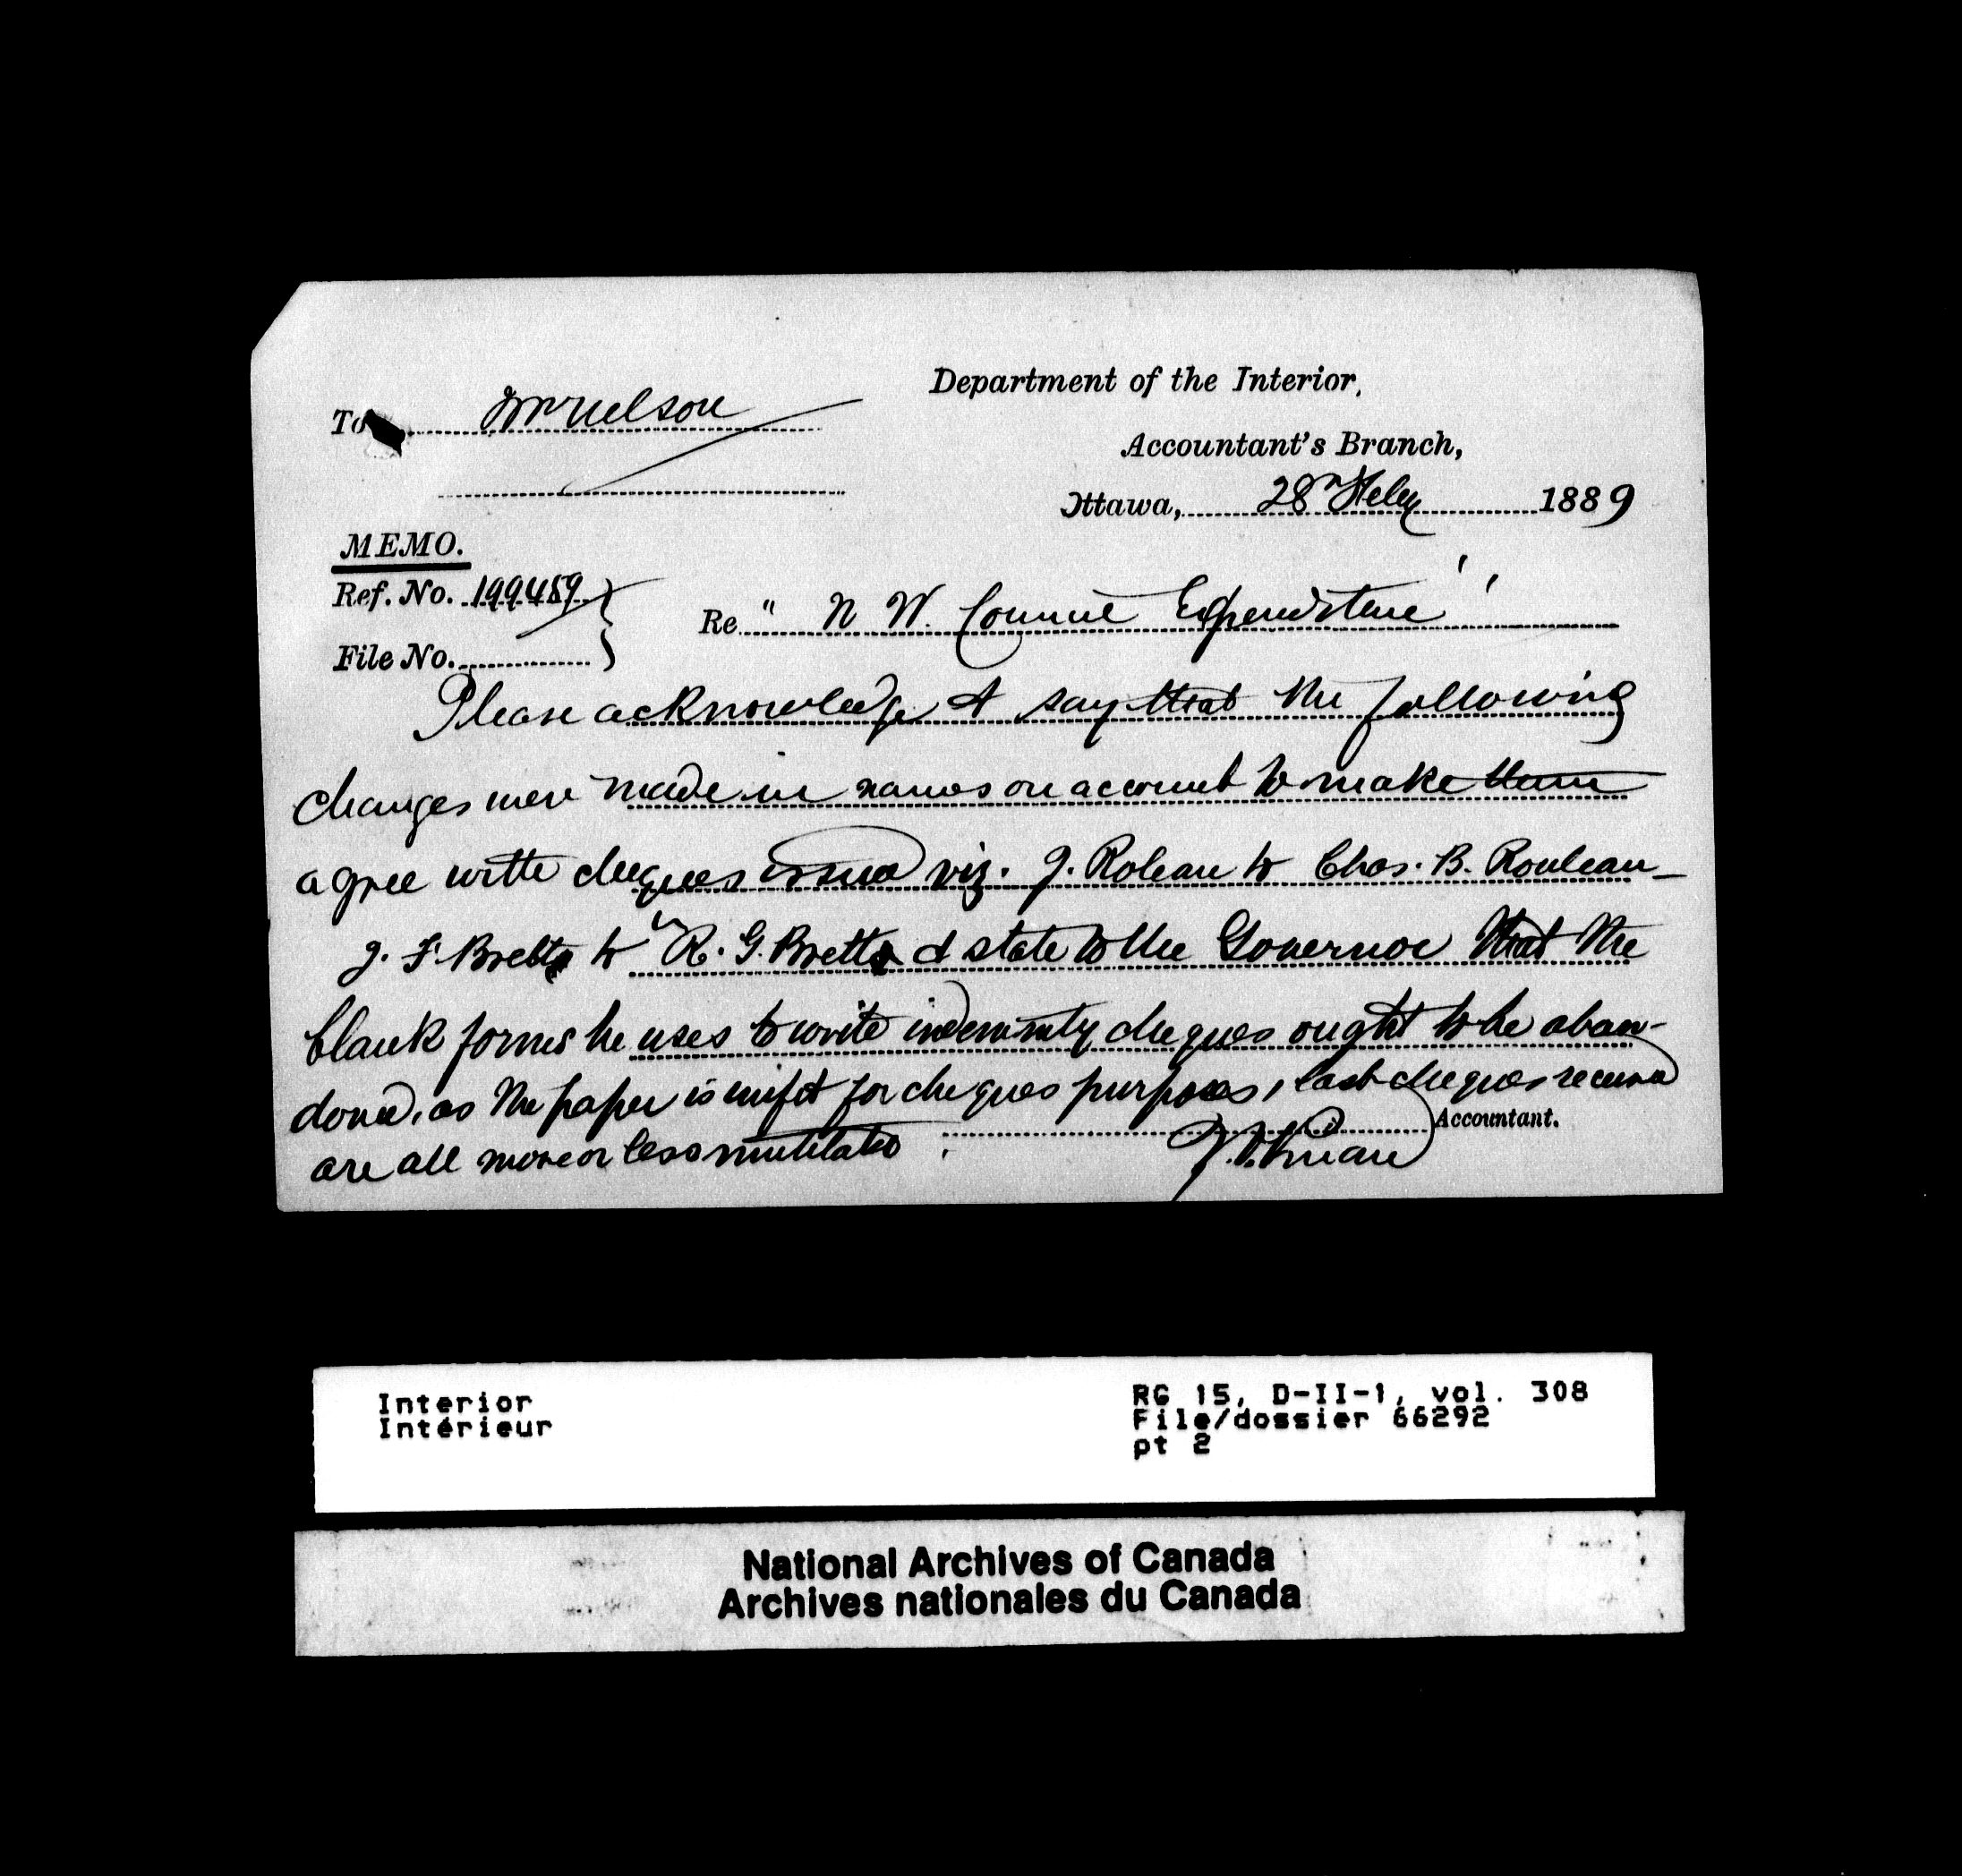 Department of the Interior,
To Mr Nelson
Accountant's Branch,
Ottawa, 28th Feby 1889
MEMO.
Ref. No. 199489
File No.
Re "N W. Council Expenditure"
Please acknowledge & say that the following
changes were made in names on account to make them
agree with cheques issued viz. J. Roleau to Chas. B. Rouleau_
J. F. Brett to R. G. Brett & state to the Governor that the
blank forms he uses to write indemnity cheques ought to be aban-
doned, as the paper is unfit for cheques purposes, last cheques received
are all more or less mutilated.
Accountant.
Interior
Intérieur
RG 15, D-II-1, vol. 308
File/dossier 66292
pt 2
National Archives of Canada
Archives nationales du Canada